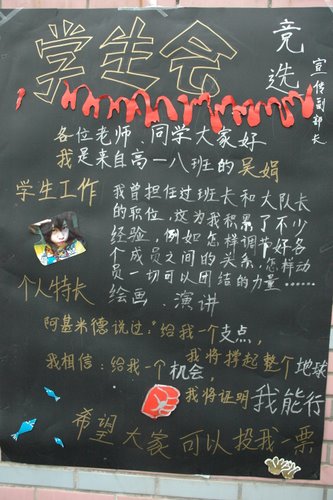 学生会
竞选
宣传副部长
各位老师、同学大家好
我是来自高一八班的吴娟
学生工作
我曾担任过班长和大队长
的职位，这为我积累了不少
经验，例如怎样调节好各
个成员之间的关系，怎样动
员一切可以团结的力量……
个人特长
绘画、演讲
阿基米德说过："给我一个支点，
我将撑起整个地球
我相信：给我一个机会，
我将证明我能行
希望大家可以投我一票